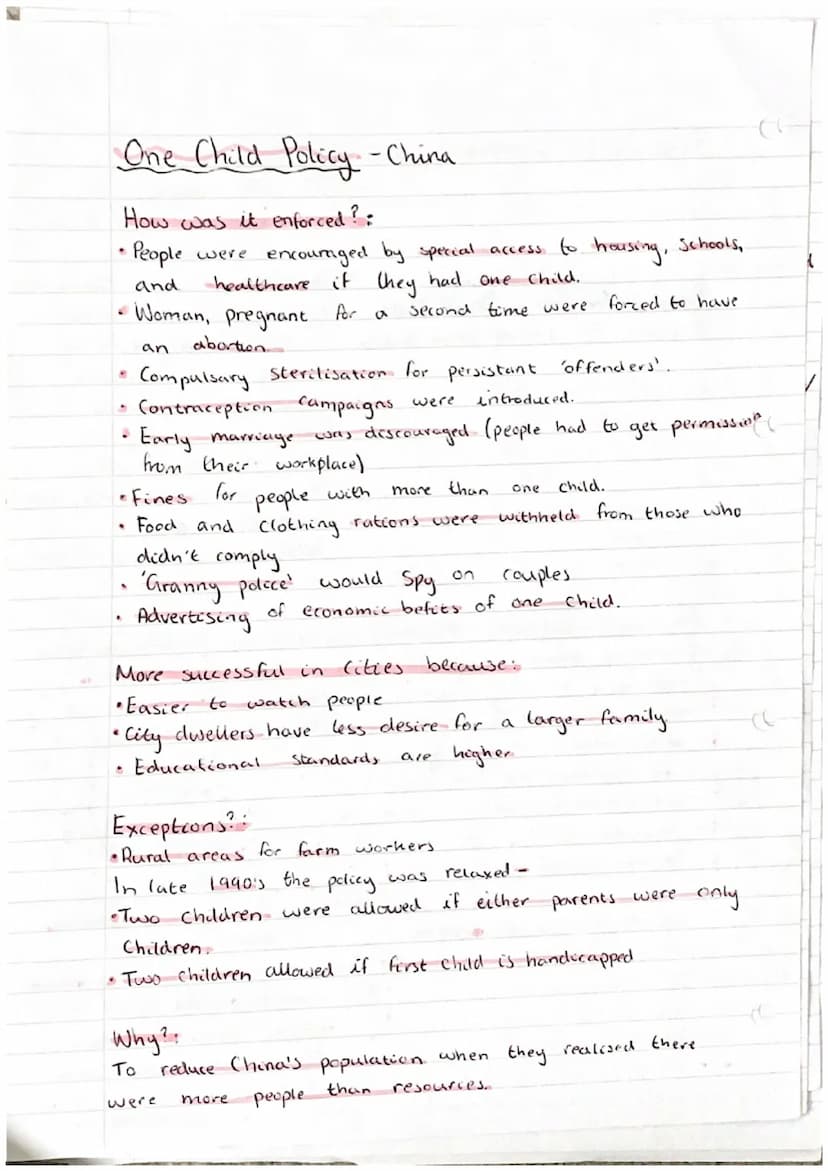 One Child Policy - China
How was it enforced?:
• People were encouraged by special access to housing, schools,
and healthcare if they had one child.
• Woman, pregnant for a second time were forced to have
an abortion
• Compulsary sterilisation for persistant 'offenders'.
• Contraception campaigns were introduced.
• Early marriage was descouraged (people had to get permission
from their workplace)
• Fines for people with more than one child.
• Food and clothing rations were withheld from those who
didn't comply
• 'Granny police' would spy on couples
• Advertising of economic befits of one child.
More successful in cities because:
• Easier to watch people
• City dwellers have less desire for a larger family
• Educational standards are higher
Exceptions?:
• Rural areas for farm workers
In late 1990's the policy was relaxed -
• Two children were allowed if either parents were only
Children.
• Two children allowed if first child is handicapped
Why?:
To reduce China's population when they realised there
were more people than resources.